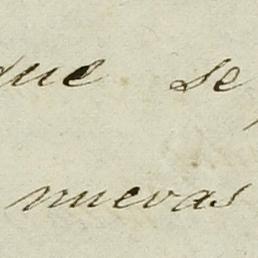 que se
nuevas